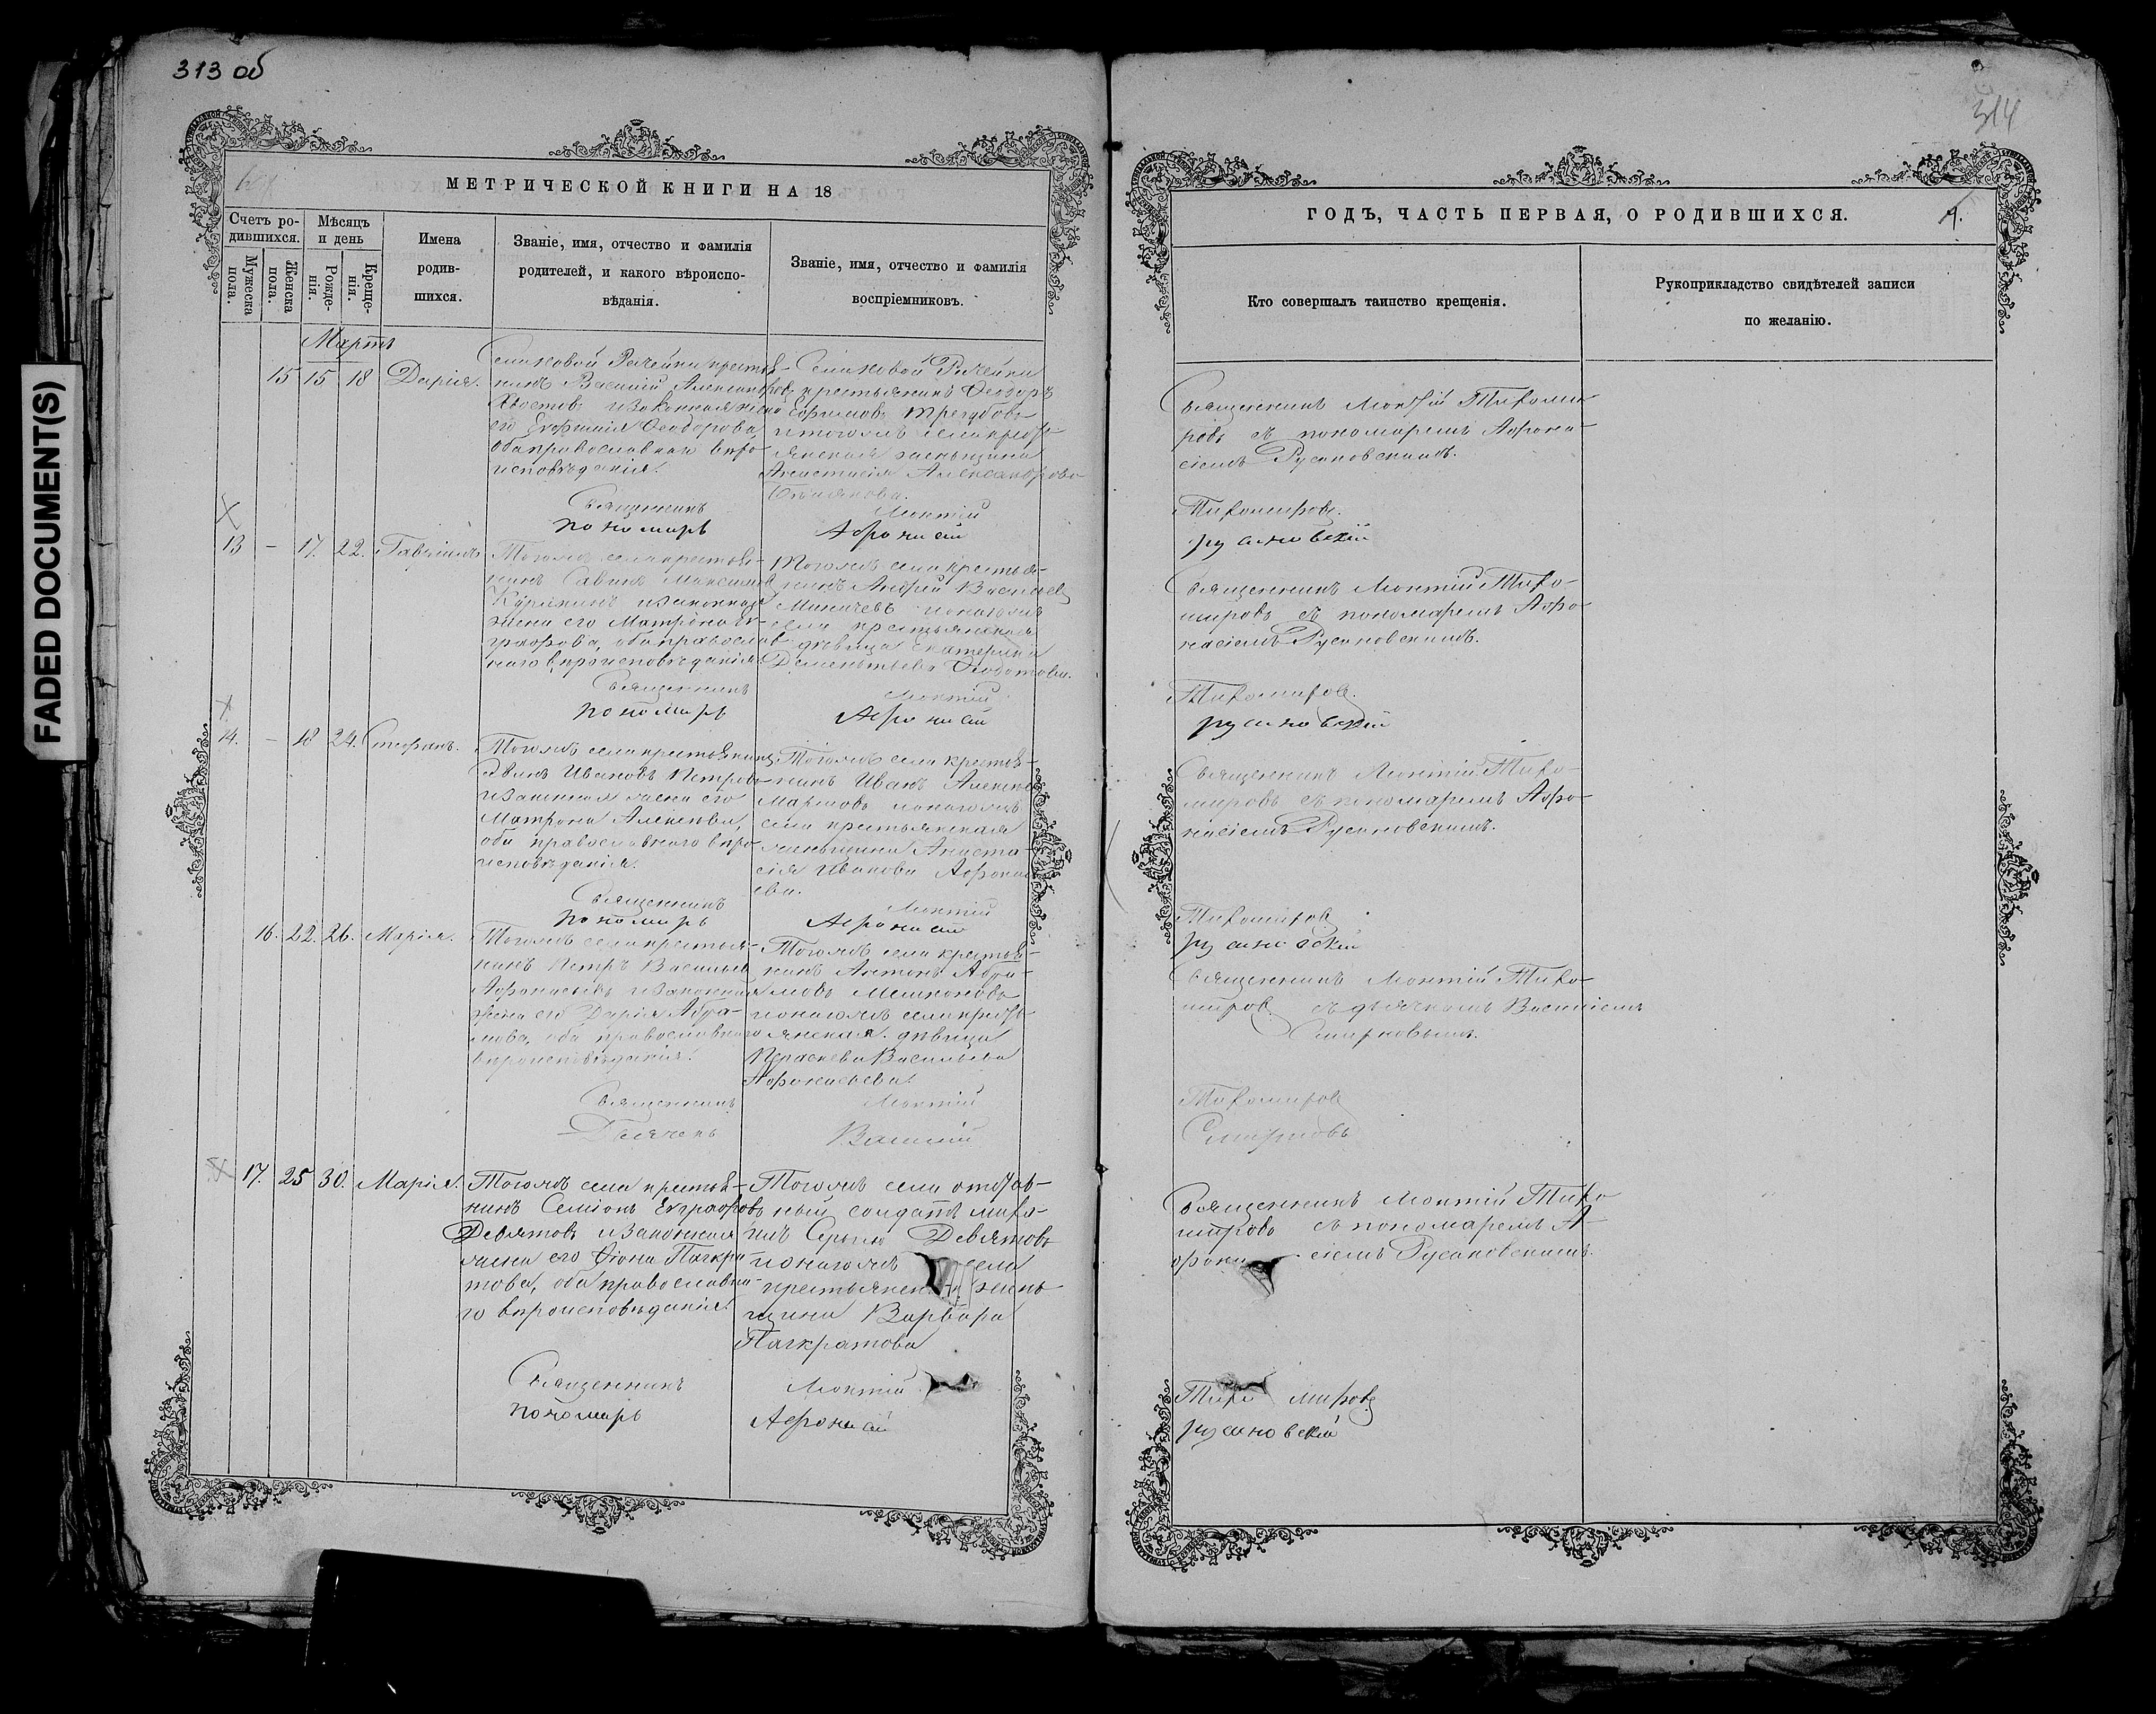 313 об
314
FADED DOCUMENT(S)
МЕТРИЧЕСКОЙ КНИГИ НА 18
Счетъ ро-
дившихся.
Мѣсяцъ
и день
Мужеска
пола.
Женска
пола.
Рожде-
нія.
Креще-
нія.
Имена
родив-
шихся.
Званіе, имя, отчество и фамилія
родителей, и какого вѣроиспо-
вѣданія.
Званіе, имя, отчество и фамилія
воспріемниковъ.
Мартъ
15 15 18 Дарія.
крестья-
нинъ Василій Александровъ
Хвостовъ и законная жена
его Евфимія Ѳеодорова,
оба православнаго вѣро-
исповѣданія.
крестьянинъ Ѳеодоръ
Ефимовъ Трегубовъ
и тогоже села кресть-
янская женьщина
Анастасія Александрова
Священникъ Моктій
Пономарь Афонасій
13 – 17. 22. Гавріилъ
Тогожъ села крестья-
нинъ Савинъ Максимовъ
Курякинъ и законная
жена его Матрона Ев-
графова, оба православ-
наго вѣроисповѣданія.
Тогожъ села крестья-
нинъ Андрей Васильевъ
Миничевъ и тогожъ
села крестьянская
дѣвица Екатерина
Дементьева Ѳедотова.
Священникъ Моктій
Пономарь Афонасій
14. – 18 24. Стефанъ.
Тогожъ села крестьянинъ
Иванъ Петровъ
и законная жена его
Матрона Алексѣева,
оба православнаго вѣро-
исповѣданія.
Тогожъ села крестья-
нинъ Иванъ Алексѣевъ
Марковъ и тогожъ
села крестьянская
женьщина Анаста-
сія Иванова Афонась-
ева.
Священникъ Моктій
Пономарь Афонасій
16. 22. 26. Марія.
Тогожъ села крестья-
нинъ Петръ Васильевъ
Афонасьевъ и законная
жена его Дарія Абра-
мова, оба православнаго
вѣроисповѣданія.
Тогожъ села крестья-
нинъ Антонъ Абра-
мовъ
и тогожъ села кресть-
янская дѣвица
Параскева Васильева
Афонасьева.
Священникъ Моктій
Дьячекъ Василій
17. 25 30. Марія.
Тогожъ села крестья-
нинъ Семіонъ Евграфовъ
Девятовъ и законная
жена его Ѳіона Панкра-
това, оба православна-
го вѣроисповѣданія.
Тогожъ села отстав-
ный солдатъ Миха-
илъ Девятовъ
и тогожъ села
крестьянск жень-
щина Варвара
Панкратова
Священникъ Моктій
Пономарь Афонасій
ГОДЪ, ЧАСТЬ ПЕРВАЯ, О РОДИВШИХСЯ.
Кто совершалъ таинство крещенія.
Рукоприкладство свидѣтелей записи
по желанію.
Священникъ Моктій Тихоми-
ровъ съ пономаремъ Афона-
сіемъ Русановскимъ.
Тихомировъ.
Русановскій
Священникъ Моктій Тихо-
мировъ съ пономаремъ Афо-
насіемъ Русановскимъ.
Тихомировъ.
Русановскій
Священникъ Моктій Тихо-
мировъ съ пономаремъ Афо-
насіемъ Русановскимъ.
Тихомировъ
Русановскій
Священникъ Моктій Тихо-
мировъ съ дьячкомъ Василіемъ
Смирновымъ.
Тихомировъ
Смирновъ
Священникъ Моктій Тихо
мировъ съ пономаремъ А-
фона сіемъ Русановскимъ.
Тихо мировъ
Русановскій